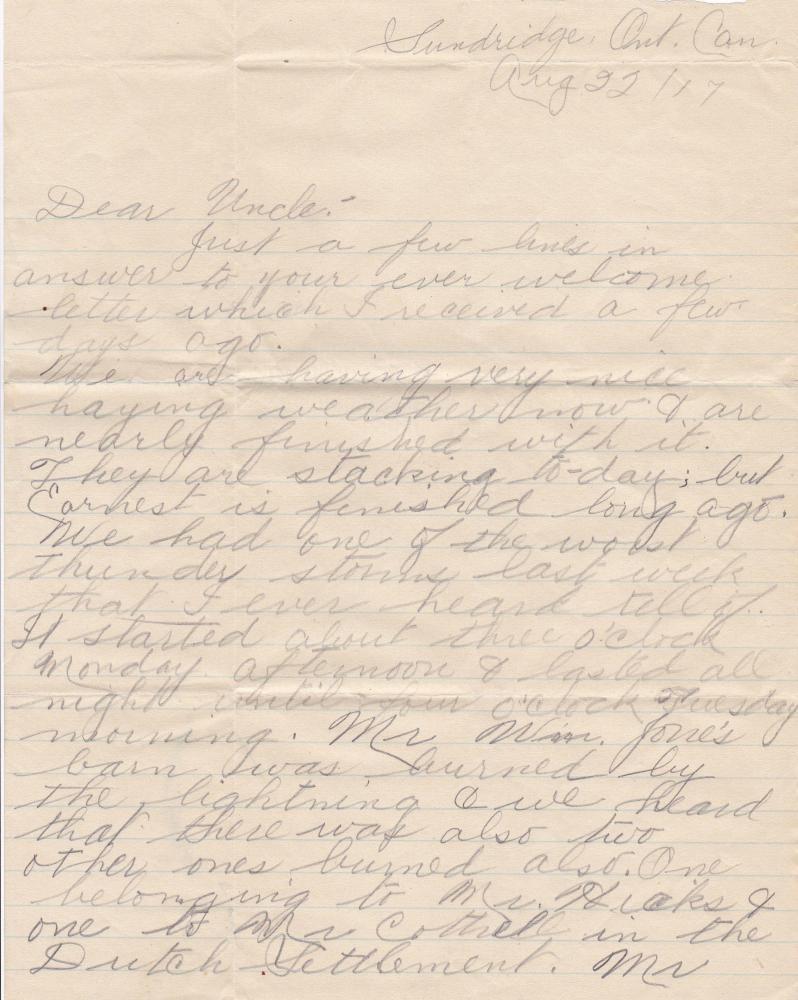 Sundridge, Ont. Can.
Aug 22 / 17
Dear Uncle:-
Just a few lines in
answer to your ever welcome
letter which I received a few
days ago.
We are having very nice
haying weather now & are
nearly finished with it.
They are stacking to-day; but
Earnest is finished long ago.
We had one of the worst
thunder storms last week
that I ever heard tell of.
It started about three o'clock
Monday afternoon & lasted all
night until four o'clock Tuesday
morning. Mr Wm. Jone's
barn was burned by
the lightning & we heard
that there was also two
other ones burned also. One
belonging to Mr. Hicks &
one to Mr Cottrell in the
Dutch Settlement. Mr